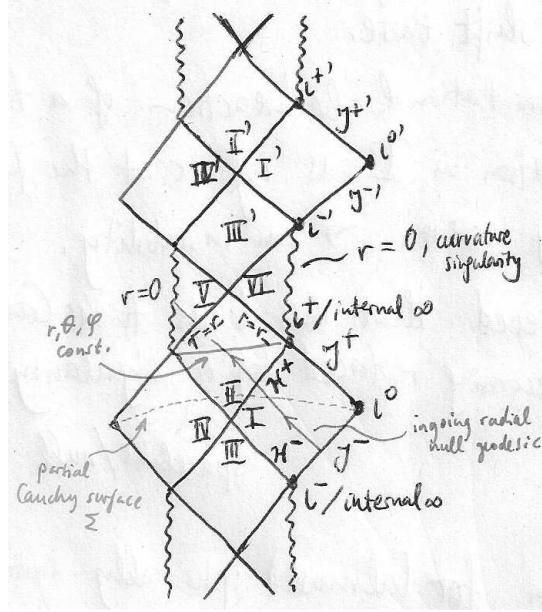 i⁺'
𝓘⁺'
II'
i⁰'
IV' I'
𝓘⁻'
i⁻'
III'
r = 0, curvature
singularity
r=0
V VI
i⁺/internal ∞
r=r₋ r=r₋
r, θ, φ
const.
𝓘⁺
H⁺
II
i⁰
IV I
III
ingoing radial
null geodesic
H⁻
𝓘⁻
partial
Cauchy surface
Σ
i⁻/internal ∞